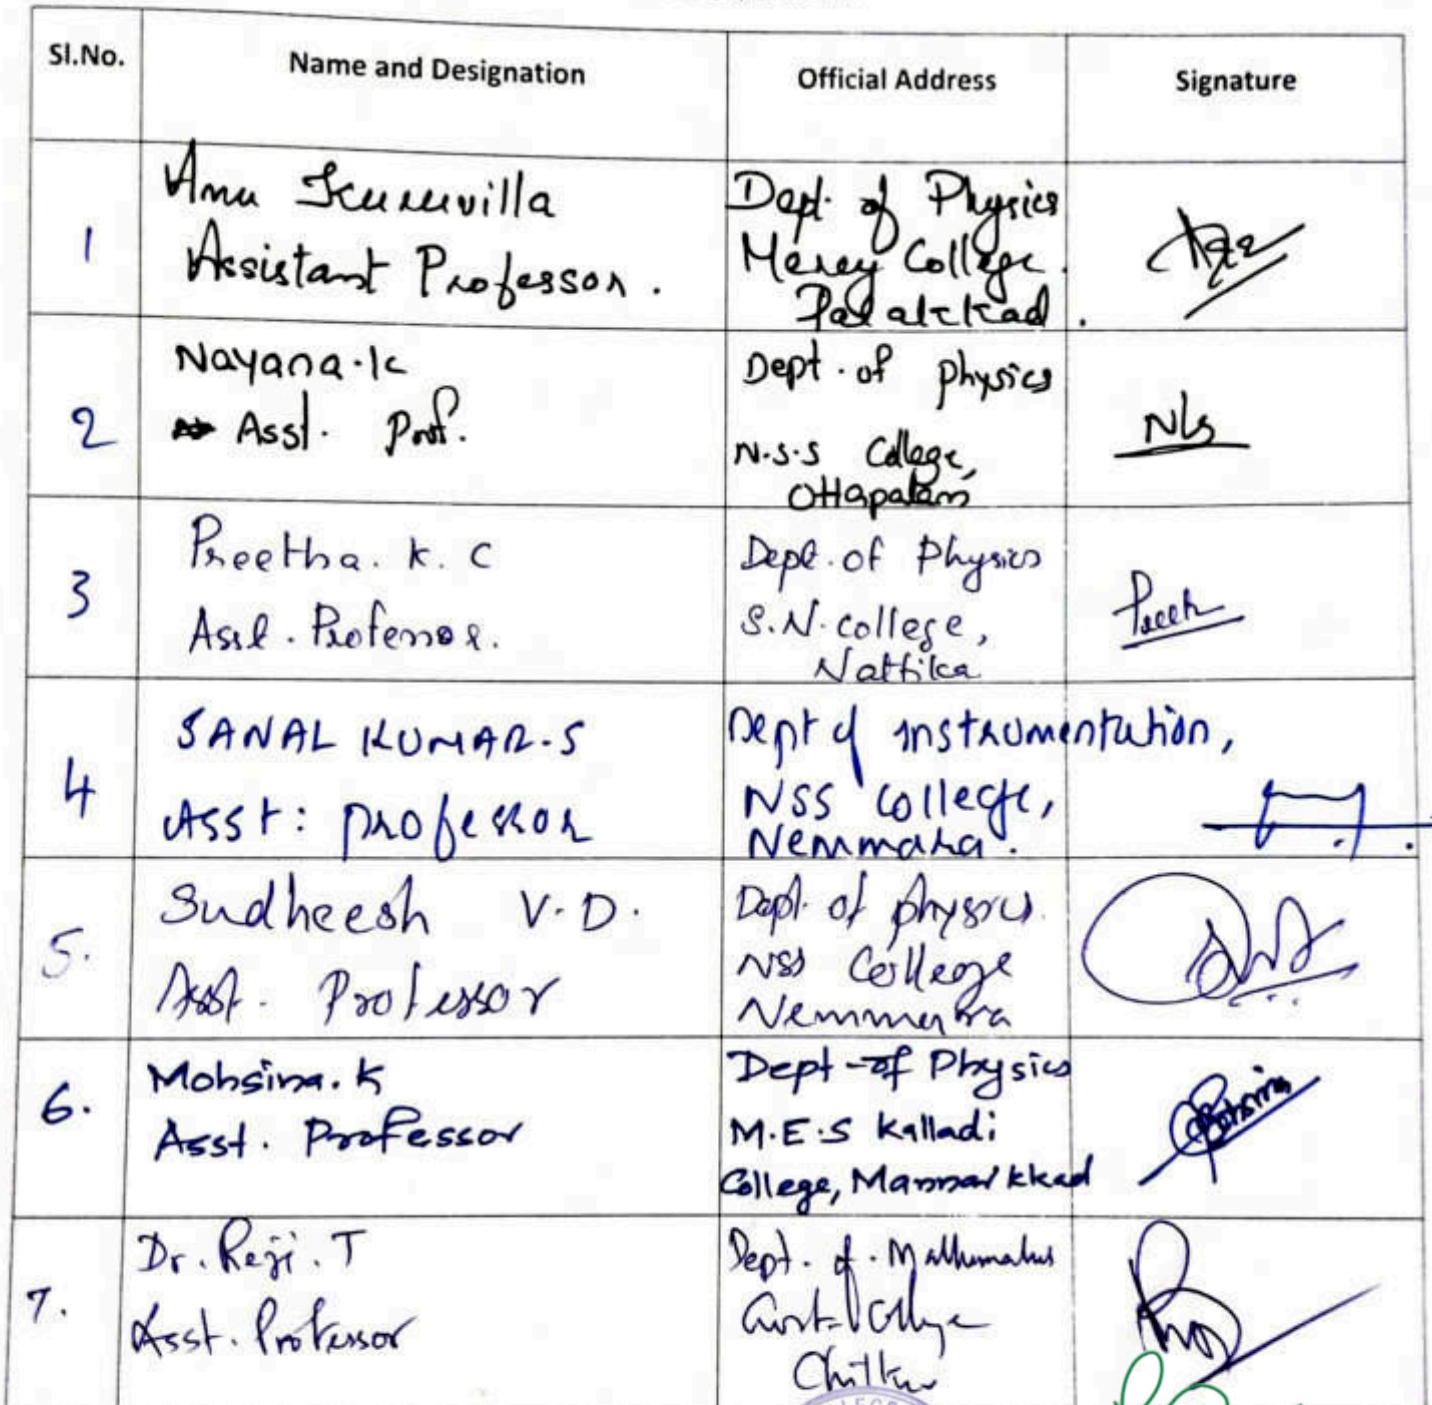 Sl.No.
Name and Designation
Official Address
Signature
1
Anu Kuruvilla
Assistant Professor.
Dept. of Physics
Mercy College.
Palakkad.
2
Nayana.K
Asst. Prof.
Dept. of physics
N.S.S College,
Ottapalam
3
Preetha. K. C
Asst. Professor.
Dept. of Physics
S.N. college,
Nattika
Preeth
4
SANAL KUMAR.S
Asst: professor
Dept of instrumentation,
NSS College,
Nemmara.
5.
Sudheesh V.D.
Asst. Professor
Dept. of physics
NSS College
Nemmara
6.
Mohsina.K
Asst. Professor
Dept-of Physics
M.E.S Kalladi
College, Mannarkkad
Mohsina
7.
Dr. Reji.T
Asst. Professor
Dept. of. Mathematics
Govt. College
Chittur